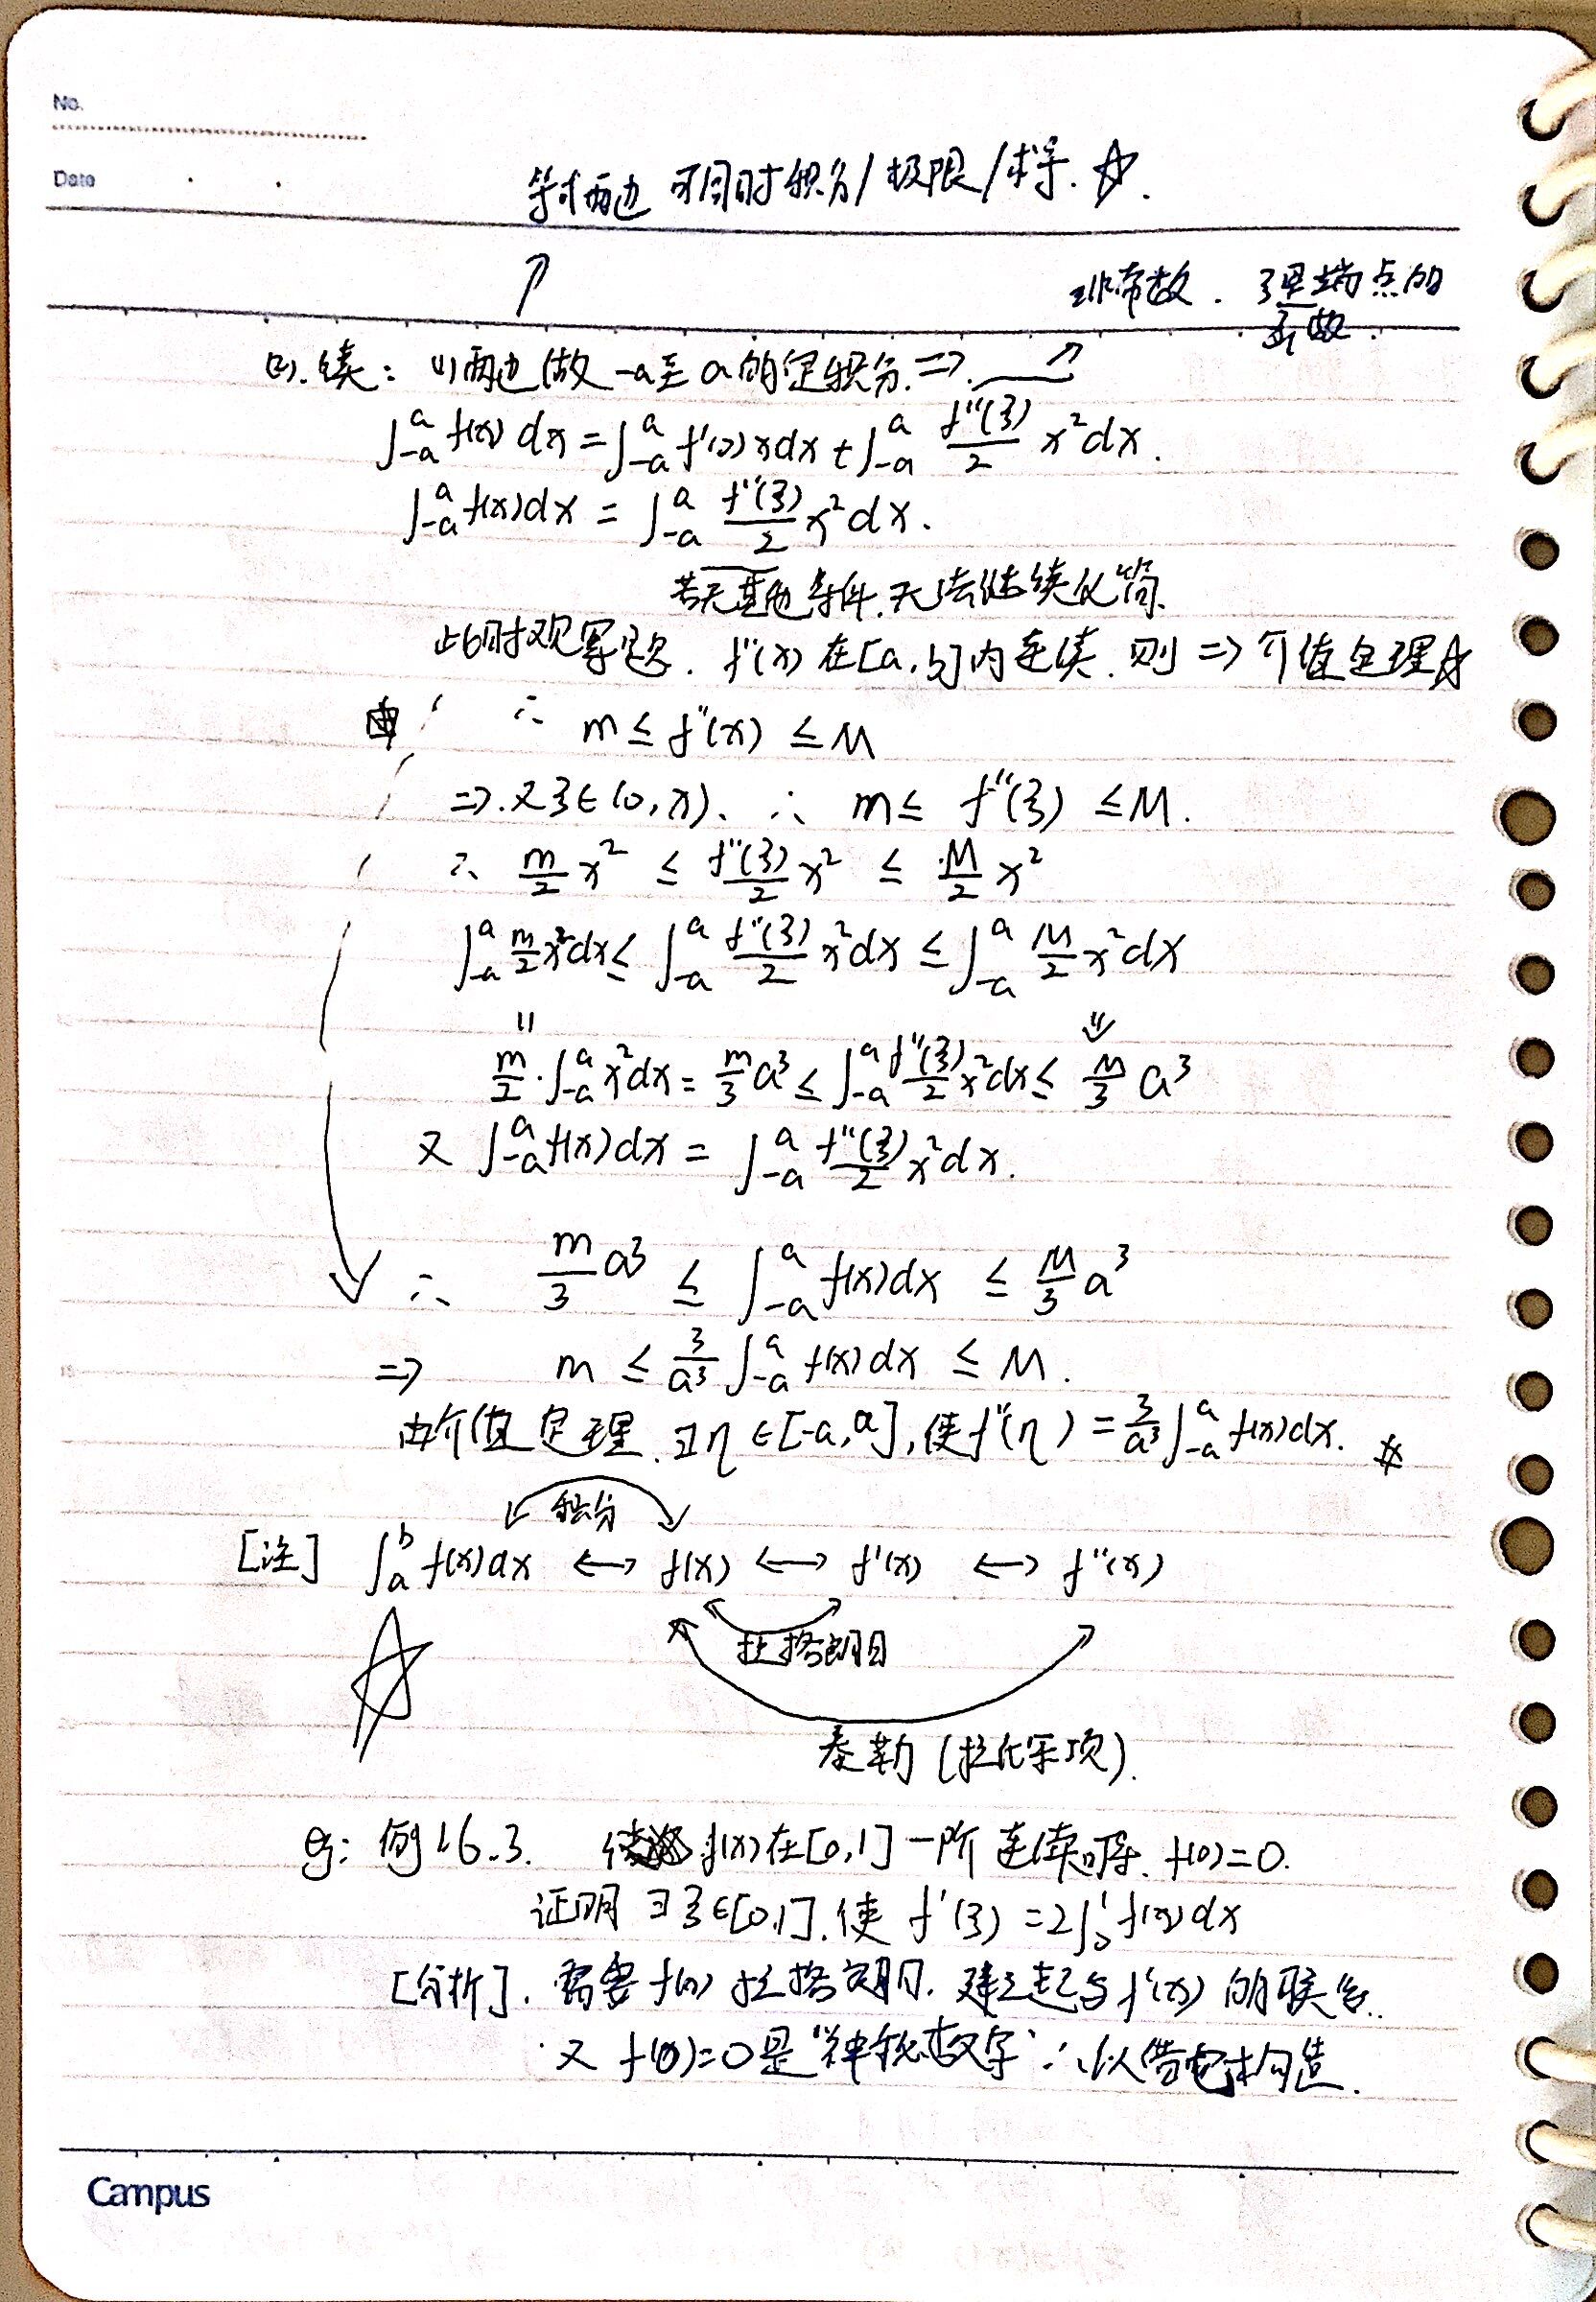 No.
Date
等式两边可同时积分/极限/求导.☆.
非常数. ξ是端点的
函数.
(2).续: (1)两边做-a至a的定积分.⇒
∫_{-a}^{a} f(x) dx = ∫_{-a}^{a} f'(0)xdx + ∫_{-a}^{a} f''(ξ)/2 x²dx.
∫_{-a}^{a} f(x)dx = ∫_{-a}^{a} f''(ξ)/2 x²dx.
若无其他条件.无法继续化简.
此时观察题. f''(x) 在[a,b]内连续.则 ⇒ 介值定理☆
∴ m ≤ f''(x) ≤ M
⇒.又ξ∈(0,x). ∴ m ≤ f''(ξ) ≤ M.
∴ m/2 x² ≤ f''(ξ)/2 x² ≤ M/2 x²
∫_{-a}^{a} m/2 x²dx ≤ ∫_{-a}^{a} f''(ξ)/2 x²dx ≤ ∫_{-a}^{a} M/2 x²dx
m/2 · ∫_{-a}^{a} x²dx = m/3 a³ ≤ ∫_{-a}^{a} f''(ξ)/2 x²dx ≤ M/3 a³
又 ∫_{-a}^{a} f(x)dx = ∫_{-a}^{a} f''(ξ)/2 x²dx.
∴ m/3 a³ ≤ ∫_{-a}^{a} f(x)dx ≤ M/3 a³
⇒ m ≤ 3/a³ ∫_{-a}^{a} f(x)dx ≤ M.
由介值定理.∃η∈[-a,a],使f''(η) = 3/a³ ∫_{-a}^{a} f(x)dx. #
积分
[注] ∫_{a}^{b} f(x)dx ↔ f(x) ↔ f'(x) ↔ f''(x)
拉格朗日
☆
泰勒(拉氏余项).
eg: 例16.3. f(x)在[0,1]一阶连续可导. f(0)=0.
证明 ∃ξ∈[0,1].使 f'(ξ) = 2∫_{0}^{1} f(x)dx
[分析]. 需要f(x) 拉格朗日. 建立起与f'(x)的联系.
又 f(0)=0是"神秘数字" ∴以借它构造.
Campus